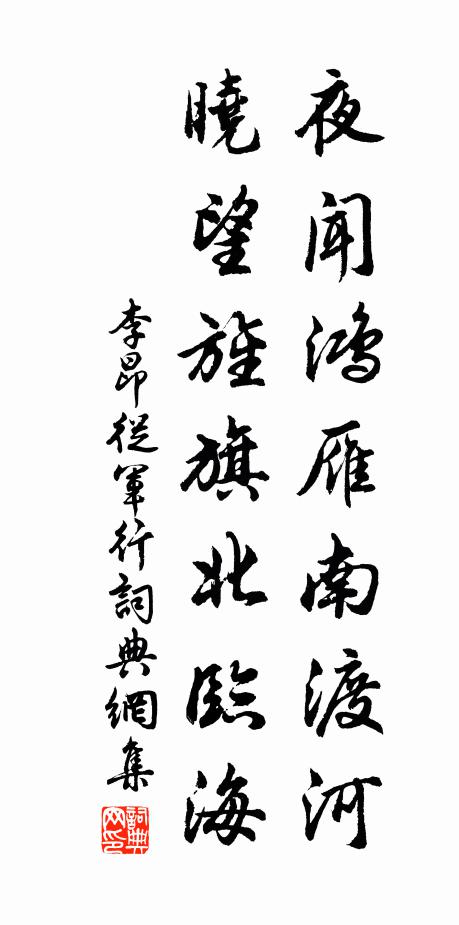 夜闻鸿雁南渡河
曉望旌旗北臨海
李昂從軍行詞典網集
詞典网印